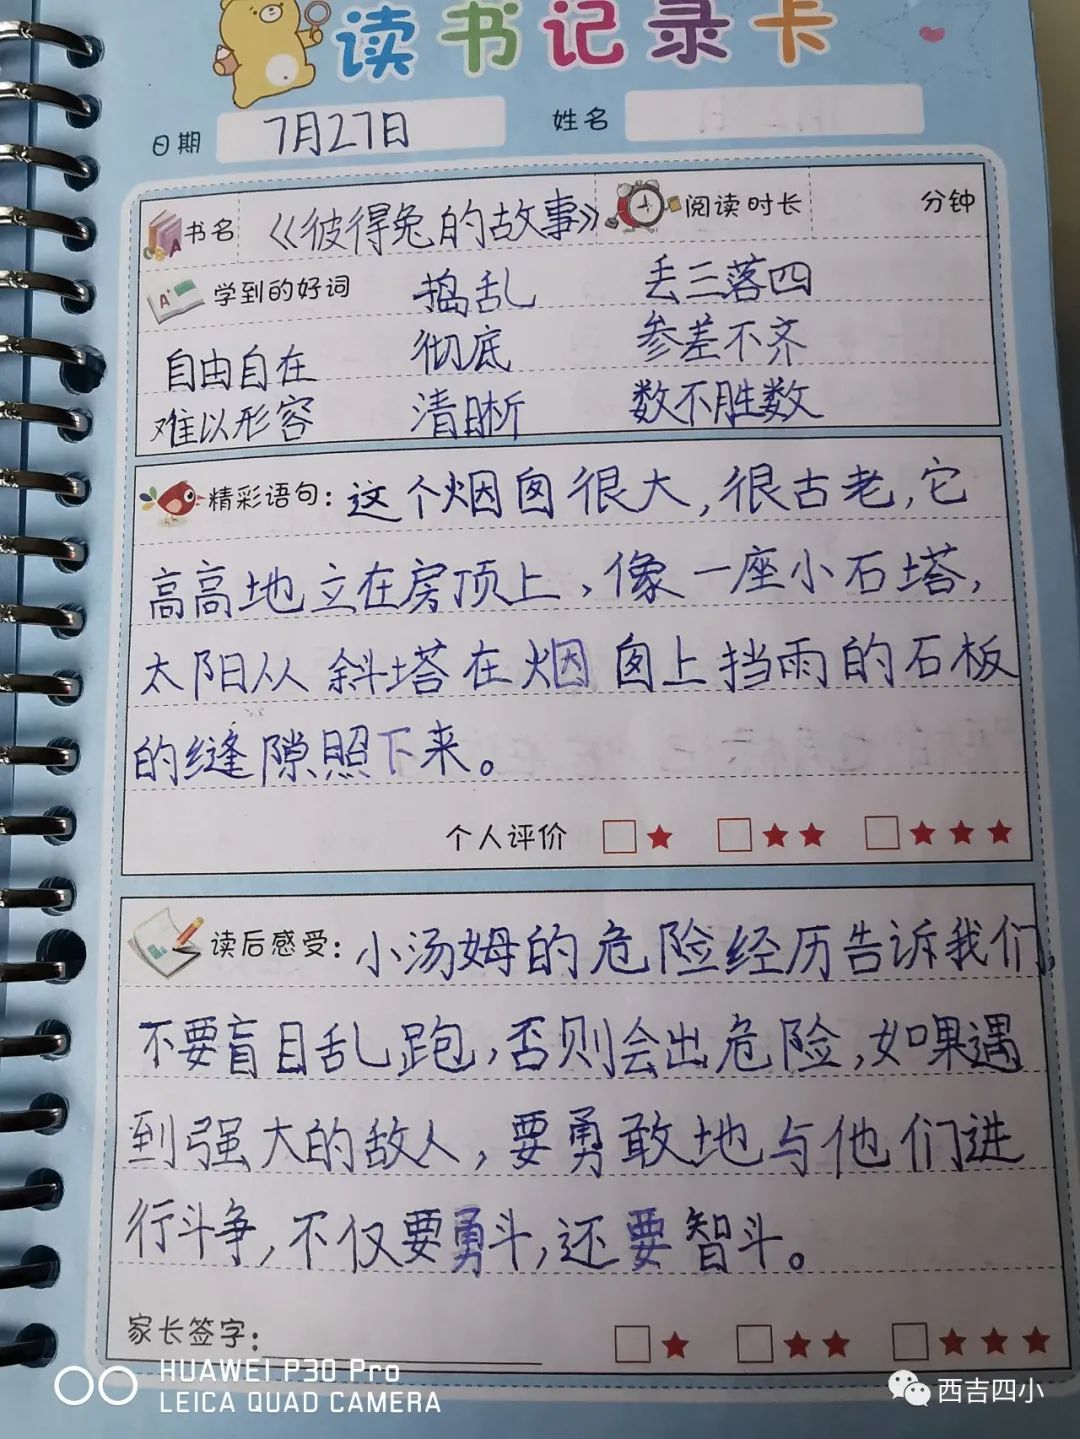 读书记录卡
日期 7月27日 姓名
书名 《彼得兔的故事》 阅读时长 分钟
学到的好词 捣乱 丢三落四
自由自在 彻底 参差不齐
难以形容 清晰 数不胜数
精彩语句：这个烟囱很大，很古老，它
高高地立在房顶上，像一座小石塔，
太阳从斜塔在烟囱上挡雨的石板
的缝隙照下来。
个人评价 ★ ★★ ★★★
读后感受：小汤姆的危险经历告诉我们，
不要盲目乱跑，否则会出危险，如果遇
到强大的敌人，要勇敢地与他们进
行斗争，不仅要勇斗，还要智斗。
家长签字： ★ ★★ ★★★
HUAWEI P30 Pro
LEICA QUAD CAMERA
西吉四小